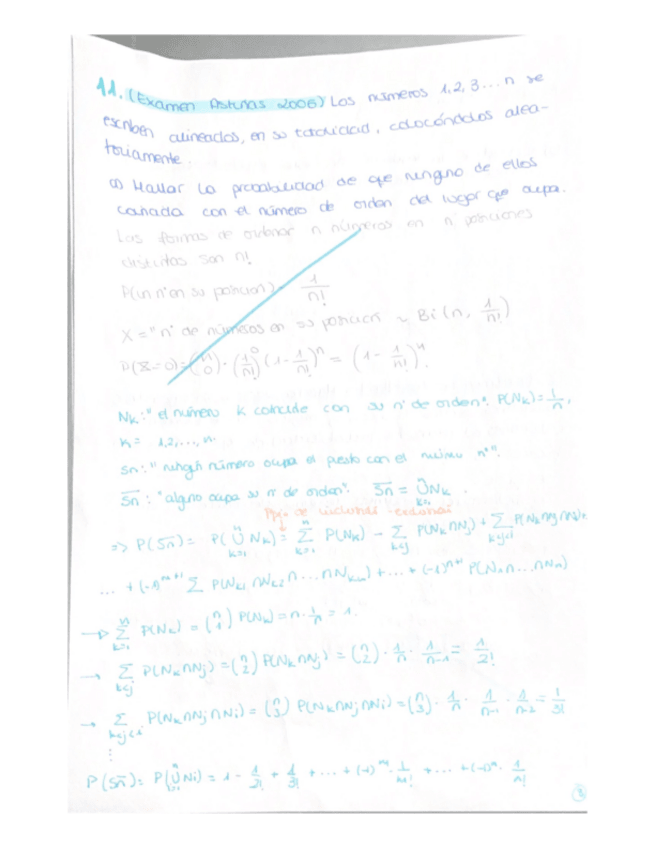 11. (Examen Asturias 2006) Los números 1, 2, 3 ... n se
escriben alineados, en su totalidad, colocándolos alea-
toriamente.
a) Hallar la probabilidad de que ninguno de ellos
coincida con el número de orden del lugar que ocupa.
Las formas de ordenar n números en n posiciones
distintas son n!
P(un nº en su posición) = 1/n!
X = "nº de números en su posición ~ Bi(n, 1/n!)
P(X=0) = (n 0) · (1/n!)^0 (1 - 1/n!)^n = (1 - 1/n!)^n.
Nk: "el número k coincide con su nº de orden". P(Nk) = 1/n,
k = 1,2,...,n.
Sn: "ningún número ocupa el puesto con el mismo nº".
S̅n̅: "alguno ocupa su nº de orden". S̅n̅ = ⋃ Nk.
de inclusión-exclusión
=> P(S̅n̅) = P(⋃ Nk) = Σ P(Nk) - Σ P(Nk∩Nj) + Σ P(Nk∩Nj∩Ni)+
... + (-1)^(m+1) Σ P(Nk1 ∩ Nk2 ∩ ... ∩ Nkm) + ... + (-1)^(n+1) P(N1∩...∩Nn)
→ Σ P(Nk) = (n 1) P(Nk) = n · 1/n = 1.
→ Σ P(Nk∩Nj) = (n 2) P(Nk∩Nj) = (n 2) · 1/n · 1/n-1 = 1/2!
→ Σ P(Nk∩Nj∩Ni) = (n 3) P(Nk∩Nj∩Ni) = (n 3) · 1/n · 1/n-1 · 1/n-2 = 1/3!
⋮
P(S̅n̅) = P(⋃ Ni) = 1 - 1/2! + 1/3! + ... + (-1)^(m+1) · 1/m! + ... + (-1)^n · 1/n!
3